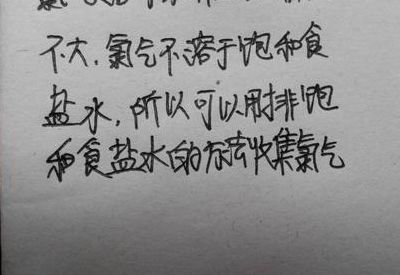 不大,氯气不溶于饱和食
盐水,所以可以用排饱
和食盐水的方法收集氯气